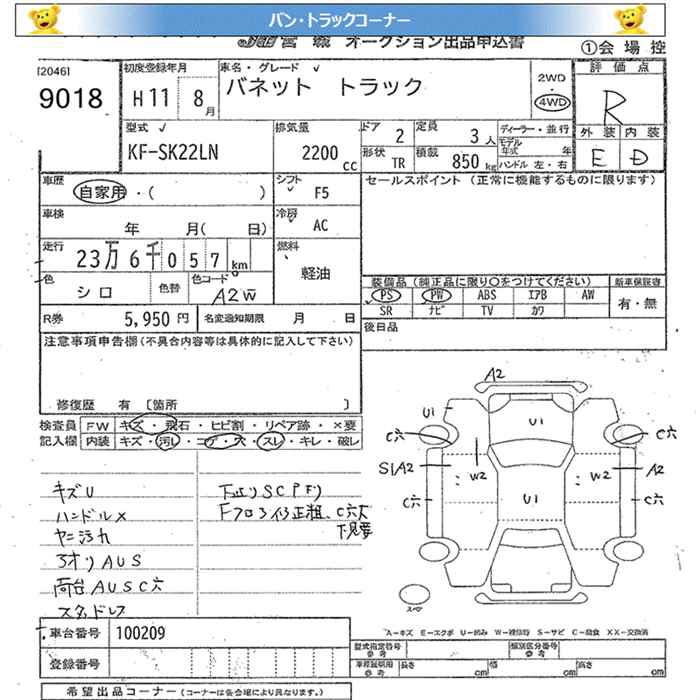 バン・トラックコーナー
オークション出品申込書
①会 場 控
[2046]
9018
初度登録年月
H11 8月
車名・グレード
バネット トラック
2WD
4WD
評 価 点
R
外 装 内 装
E D
型式
KF-SK22LN
排気量
2200 cc
ドア 2
定員 3人
形状 TR
積載 850kg
ディーラー・並行
モデル年式 年
ハンドル 左・右
車歴
自家用・( )
シフト
F5
セールスポイント (正常に機能するものに限ります)
車検
年 月( 日)
冷房
AC
走行
23万6千057km
燃料
軽油
色
シロ
色替
色コード
A2W
装備品 (純正品に限り○をつけてください)
新車保証書
PS PW ABS エアB AW
有・無
SR ナビ TV カワ
R券 5,950円
名変通知期限 月 日
後日品
注意事項申告欄(不具合内容等は具体的に記入して下さい)
修復歴 有 〔箇所 〕
検査員 FW キズ・飛石・ヒビ割・リペア跡・×要
記入欄 内装 キズ・汚レ・コゲ・穴・スレ・キレ・破レ
キズU
ハンドル×
ヤニ汚れ
アオリAUS
荷台AUSC穴
スタッドレス
下廻りSCPFり
Fフロア修正粗、C穴大
下見要
A2
U1
U1
C穴
C穴
S1A2
W2
W2
A2
C穴
U1
C穴
スペア
A−キズ E−エクボ U−凹み W−補修跡 S−サビ C−腐食 XX−交換済
車台番号 100209
登録番号
型式指定番号 参考
類別区分番号 参考
車庫証明用 参考
長さ cm
幅 cm
高さ cm
希望出品コーナー(コーナーは各会場により異なります。)